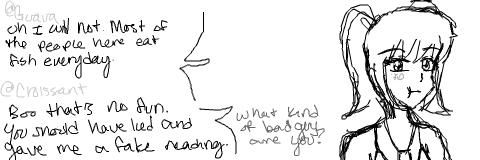 @Guava
Oh I will not. Most of
the people here eat
fish everyday.
@Croissant
Boo that's no fun.
You should have lied and
gave me a fake reading.
What kind
of bad guy
are you?